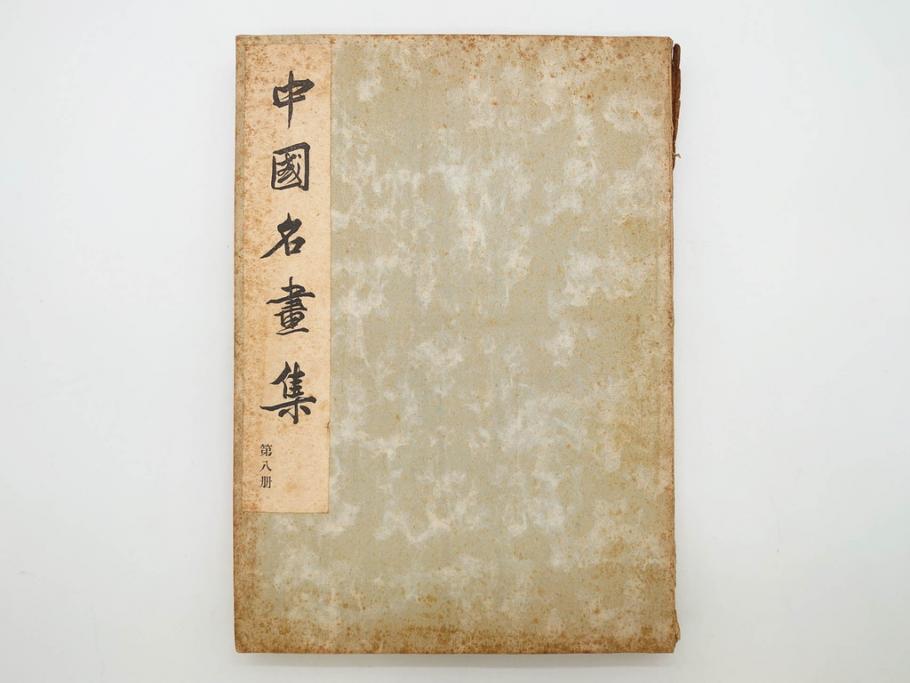 中國名畫集
第八册